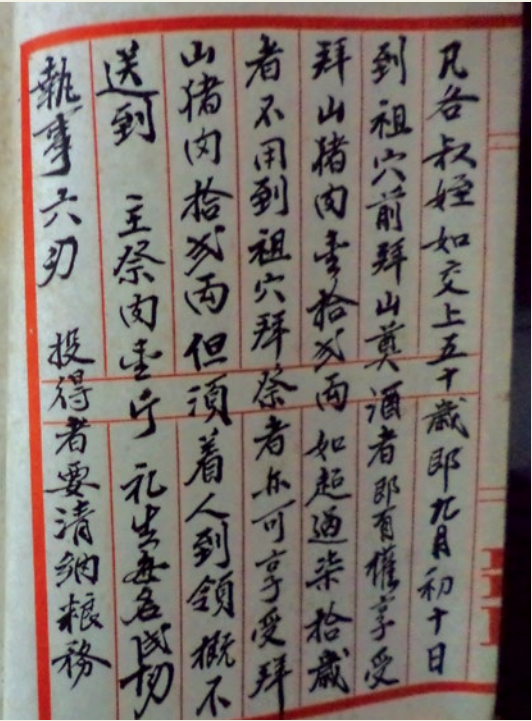 凡各叔姪如交上五十歲即九月初十日
到祖穴前拜山奠酒者即有權享受
拜山猪肉壹拾弍両如超過柒拾歲
者不用到祖穴拜祭者亦可享受拜
山猪肉拾弍両但須着人到領概不
送到 主祭肉壹斤 礼生每名
執事六刃 投得者要清納粮務